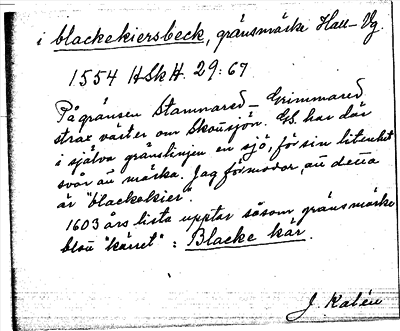 i blackekiersbeck, gränsmärke Hall-Vg.
1554 HSkH 29:67
På gränsen Stamnared – Grimmared
strax väster om Skousjön. GS. har där
i själva gränslinjen en sjö, för sin litenhet
svår att märka. Jag förmodar, att detta
är "blackekier".
1603 års lista upptar såsom gränsmärke
blott "kärret" : Blacke kär.
J. Kalén